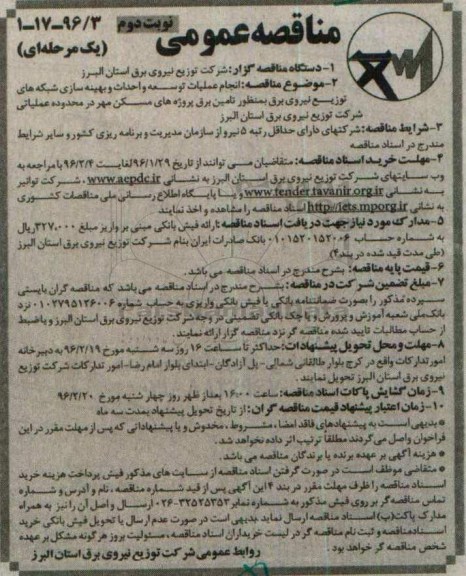 مناقصه عمومی
نوبت دوم
۱-۱۷-۹۶/۳
(یک مرحله‌ای)
۱-دستگاه مناقصه گزار: شرکت توزیع نیروی برق استان البرز
۲-موضوع مناقصه: انجام عملیات توسعه و احداث و بهینه سازی شبکه های
توزیع نیروی برق بمنظور تامین برق پروژه های مسکن مهر در محدوده عملیاتی
شرکت توزیع نیروی برق استان البرز
۳-شرایط مناقصه: شرکتهای دارای حداقل رتبه ۵ نیرو از سازمان مدیریت و برنامه ریزی کشور و سایر شرایط
مندرج در اسناد مناقصه
۴-مهلت خرید اسناد مناقصه: متقاضیان می توانند از تاریخ ۹۶/۱/۲۹ لغایت ۹۶/۲/۴ با مراجعه به
وب سایتهای شرکت توزیع نیروی برق استان البرز به نشانی www.aepdc.ir ، شرکت توانیر
به نشانی www.tender.tavanir.org.ir و یا پایگاه اطلاع رسانی ملی مناقصات کشوری
به نشانی http://iets.mporg.ir اسناد مناقصه را مشاهده و اخذ نمایند
۵-مدارک مورد نیاز جهت دریافت اسناد مناقصه: ارائه فیش بانکی مبنی بر واریز مبلغ ۳۲۷،۰۰۰ ریال
به شماره حساب ۰۱۰۱۵۲۰۱۵۲۰۰۶ بانک صادرات ایران بنام شرکت توزیع نیروی برق استان البرز
(طی مدت قید شده در بند۴)
۶-قیمت پایه مناقصه: بشرح مندرج در اسناد مناقصه می باشد.
۷-مبلغ تضمین شرکت در مناقصه: بشرح مندرج در اسناد مناقصه می باشد که مناقصه گران بایستی
سپرده مذکور را بصورت ضمانتنامه بانکی یا فیش بانکی واریزی به حساب شماره ۰۱۰۲۷۹۵۱۲۶۰۰۶ نزد
بانک ملی شعبه آموزش و پرورش و یا چک بانکی تضمینی در وجه شرکت توزیع نیروی برق استان البرز و یا ضبط
از حساب مطالبات تایید شده مناقصه گر نزد مناقصه گزار ارائه نمایند.
۸-مهلت و محل تحویل پیشنهادات: حداکثر تا ساعت ۱۶ روز سه شنبه مورخ ۹۶/۲/۱۹ به دبیرخانه
امور تدارکات واقع در کرج بلوار طالقانی شمالی-پل آزادگان-ابتدای بلوار امام رضا-امور تدارکات شرکت توزیع
نیروی برق استان البرز تحویل نمایند.
۹-زمان گشایش پاکات اسناد مناقصه: ساعت ۱۶:۰۰ بعداز ظهر روز چهار شنبه مورخ ۹۶/۲/۲۰
۱۰-زمان اعتبار پیشنهاد قیمت مناقصه گران: از تاریخ تحویل پیشنهاد بمدت سه ماه
* بدیهی است به پیشنهادهای فاقد امضا، مشروط، مخدوش و یا پیشنهاداتی که پس از مهلت مقرر در این
فراخوان واصل می گردند مطلقاً ترتیب اثر داده نخواهد شد.
* هزینه آگهی بر عهده برنده یا برندگان مناقصه می باشد.
* متقاضی موظف است در صورت گرفتن اسناد مناقصه از سایت های مذکور فیش پرداخت هزینه خرید
اسناد مناقصه را ظرف مهلت مقرر در بند ۴ این آگهی پس از قید شماره مناقصه، نام و آدرس و شماره
تماس مناقصه گر بر روی فیش مذکور به شماره نمابر ۳۲۵۲۵۳۵۲-۰۲۶ ارسال و اصل آن را نیز به همراه
مدارک پاکت(ب) اسناد مناقصه ارسال نماید بدیهی است در صورت عدم ارسال یا تحویل فیش بانکی خرید
اسنادمناقصه و ثبت نام مناقصه گر در لیست خریداران اسناد مناقصه، مسئولیت بروز هر گونه مشکل بر عهده
شخص مناقصه گر خواهد بود.
روابط عمومی شرکت توزیع نیروی برق استان البرز